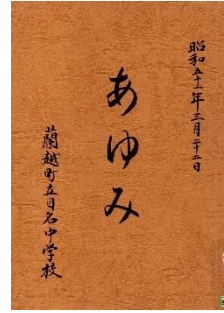 昭和五十一年三月二十二日
あゆみ
蘭越町立目名中学校